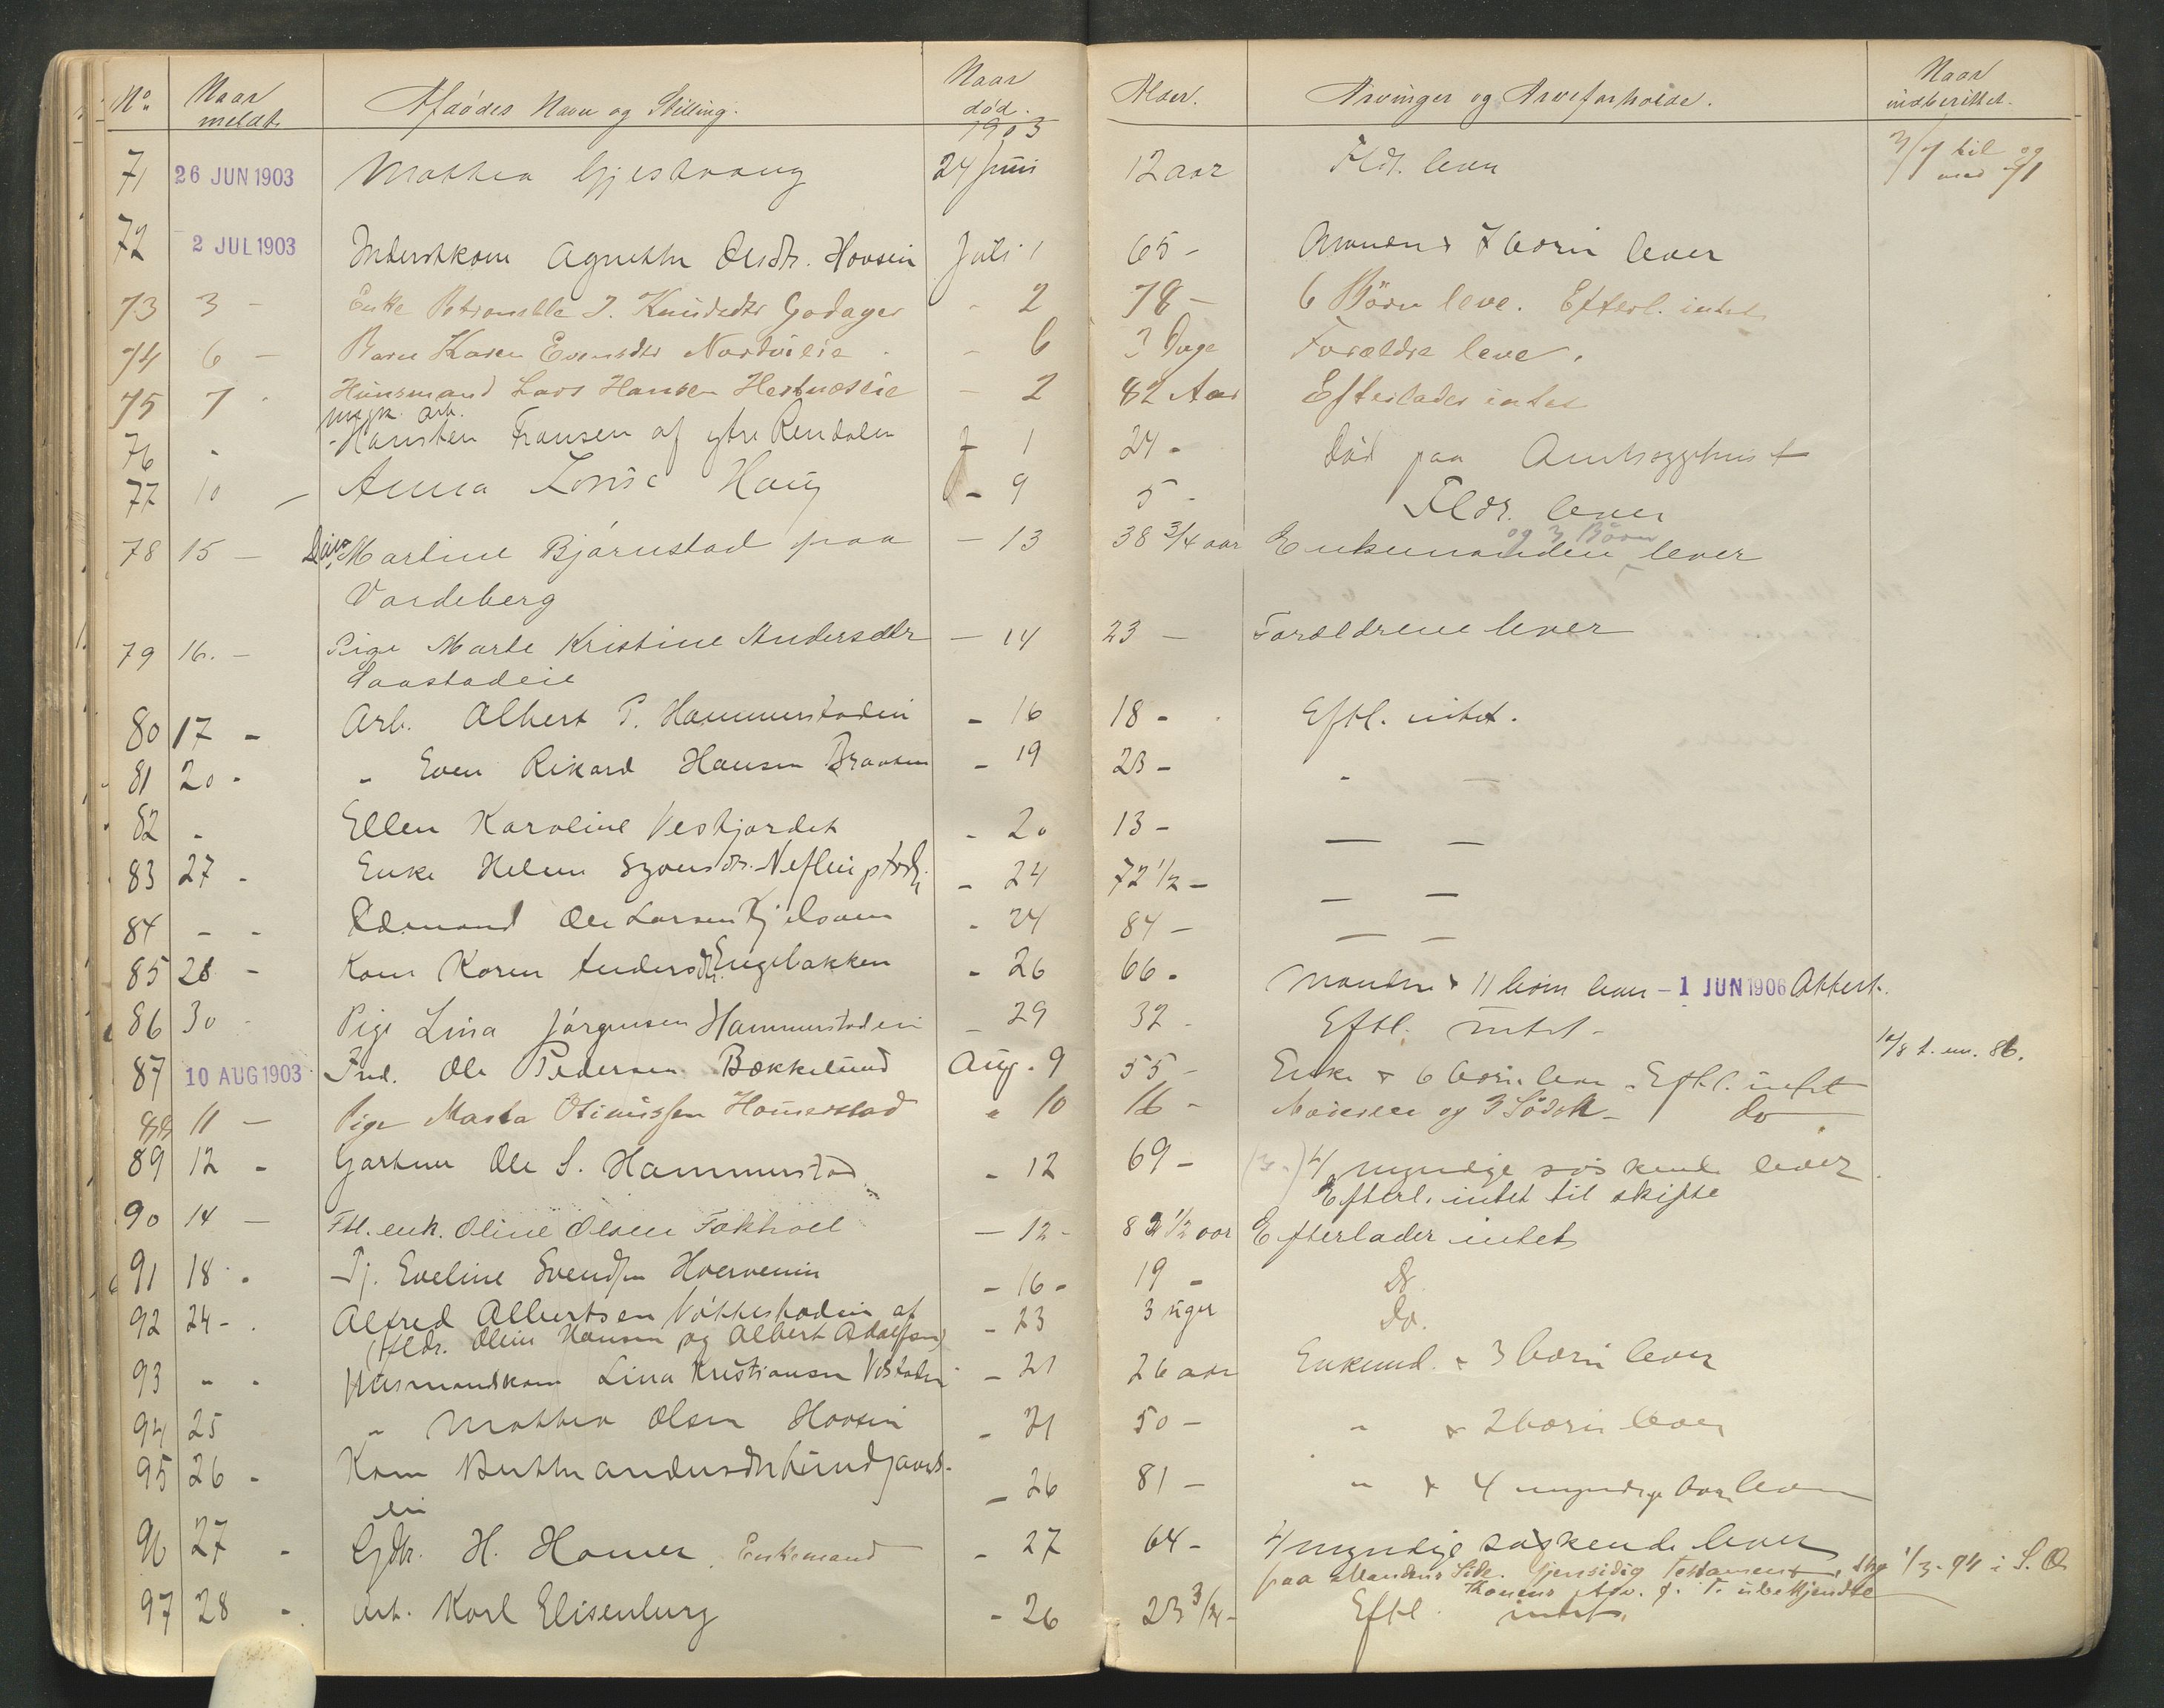 No. Naar meldt. Afdödes Navn og Stilling. Naar död. 1903 Alder. Arvinger og Arveforholde. Naar indberettet.
71 26 JUN 1903 Mathea Gjestvang 24 Juni 12 aar Fldr. lever 3/7 til og med 71
72 2 JUL 1903 Inderstkone Agnethe Olsdtr. Hovsein Juli 1 65 - Manden + 7 börn lever
73 3 - Enke Petronelle J. Knudsdtr Godager - 2 78 - 6 Börn leve. Efterl. intet
74 6 - Barn Karen Evensdtr - 6 3 Dage Forældre leve.
75 7 Husmand Lars Hansen Hestnæseie - 2 82 Aar Efterlader intet
76 - arb. Hansten Fransen af ytre Rendalen 1 24 - Död paa Amtssygehuset
77 10 - Anna Lovise Haug - 9 5 - Fldr. lever
78 15 - Martine Bjørnstad paa - 13 38 3/4 aar Enkemanden og 3 Börn lever
Vardeberg
79 16. - Pige Marte Kristine Andersdtr - 14 23 - Forældrene lever
Saastadeie
80 17 - Arb. Albert P. Hammerstadein - 16 18 - Eftl. intet.
81 20 - " Even Rikard Hansen - 19 23 - - -
82 - Ellen Karoline Vestjordet - 20 13 - - -
83 27 - Enke Helene - 24 72 1/2 - - -
84 - - Ole Larsen - 24 84 - - -
85 28 - Kone Karen Andersdtr. Engebakken - 26 66 - Manden + 11 börn lever - 1 JUN 1906 Attest.
86 30 - Pige Lina Jörgensen Hammerstadein - 29 32 - Eftl. intet - 10/8 t. 86.
87 10 AUG 1903 Ind. Ole Pedersen Bækkelund Aug. 9 55 - Enke + 6 börn lever. Eftl. intet
88 11 - Pige Marta Otiniussen Homerstad " 10 16 - Moderen og 3 Södsk - do
89 12 - Gartner Ole S. Hammerstad - 12 69 - 4 myndige söskende lever
Efterl. intet til skifte
90 14 - Ftl. enk. Oline Olsen - 12 - 82 1/2 aar Efterlader intet
91 18 - Pj. Eveline Svendsen - 16 - 19 - Do
92 24 - Alfred Albertsen af - 23 3 uger Do.
(Fldr. Oline Hansen og Albert Adolfsen)
93 - - Husmandskone Lina Kristiansen - 21 26 aar Enkemd. + 3 börn lever
94 25 " Mathea Olsen Hovsein - 21 50 - " + 2 börn lever
95 26 - Kone Berthe Andersdtr - 26 81 - " + 4 myndige börn lever
ein
96 27 - Gdbr. H. Homer Enkemand - 27 64 - 4 myndige söskende lever
paa Mandens Side. Gjensidig Testament, 1/3-94 i S. O
Konens ubekjendte
97 28 - Arb. Karl Elisenberg - 26 23 3/4 - Eftl. intet.